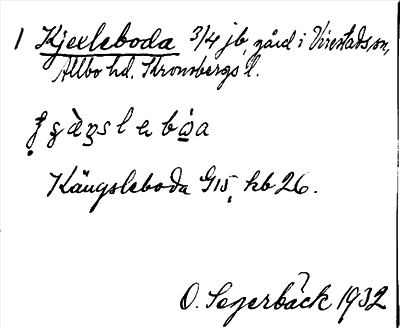 1 Kjexleboda 3/4 jb, gård i Virestads sn,
Allbo hd. Kronobergs l.
Kängsleboda G15, hb 26.
O. Segerbäck 1932